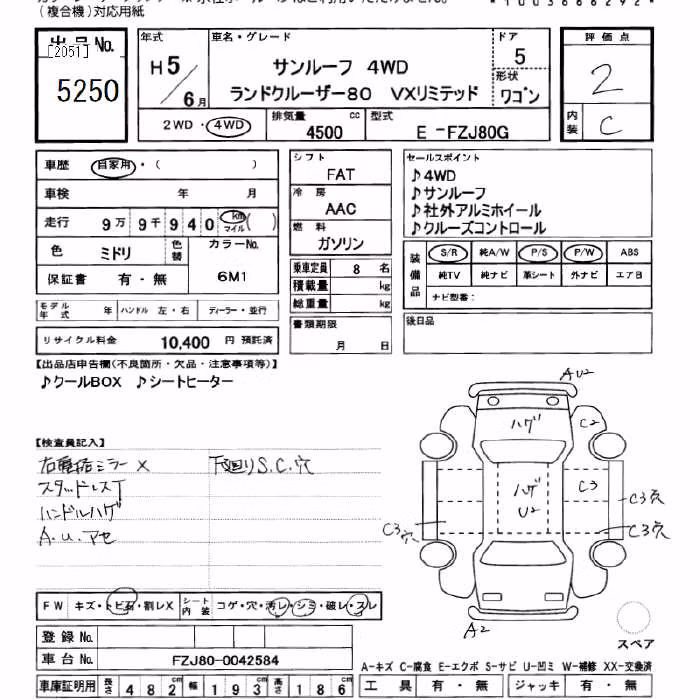 （複合機）対応用紙
*1003666292*
出品No.
[2051]
5250
年式
H5/6月
車名・グレード
サンルーフ 4WD
ランドクルーザー80 VXリミテッド
ドア
5
形状
ワゴン
評価点
2
内装
C
2WD・4WD
排気量
4500 cc
型式
E-FZJ80G
車歴 自家用・（ ）
車検 年 月
走行 9万9千940 km マイル ( )
色 ミドリ 色替 カラーNo.
6M1
保証書 有・無
モデル年式 年 ハンドル 左・右 ディーラー・並行
リサイクル料金 10,400 円 預託済
シフト
FAT
冷房
AAC
燃料
ガソリン
乗車定員 8 名
積載量 kg
総重量 kg
書類期限
月 日
セールスポイント
♪4WD
♪サンルーフ
♪社外アルミホイール
♪クルーズコントロール
装備品
S/R 純A/W P/S P/W ABS
純TV 純ナビ 革シート 外ナビ エアB
ナビ型番：
後日品
【出品店申告欄（不良箇所・欠品・注意事項等）】
♪クールBOX ♪シートヒーター
【検査員記入】
ミラー X
スタッドレスT
ハンドルハゲ
A.U.アセ
下廻りS.C.穴
AU2
ハゲ
C2
ハゲ
U2
C3
C3穴
C3穴
C3穴
A2
スペア
FW キズ・トビ石・割レX シート内装 コゲ・穴・汚レ・シミ・破レ・スレ
登録No.
車台No. FZJ80-0042584
車庫証明用 長さ 482 幅 193 高さ 186
A-キズ C-腐食 E-エクボ S-サビ U-凹ミ W-補修 XX-交換済
工具 有・無 ジャッキ 有・無